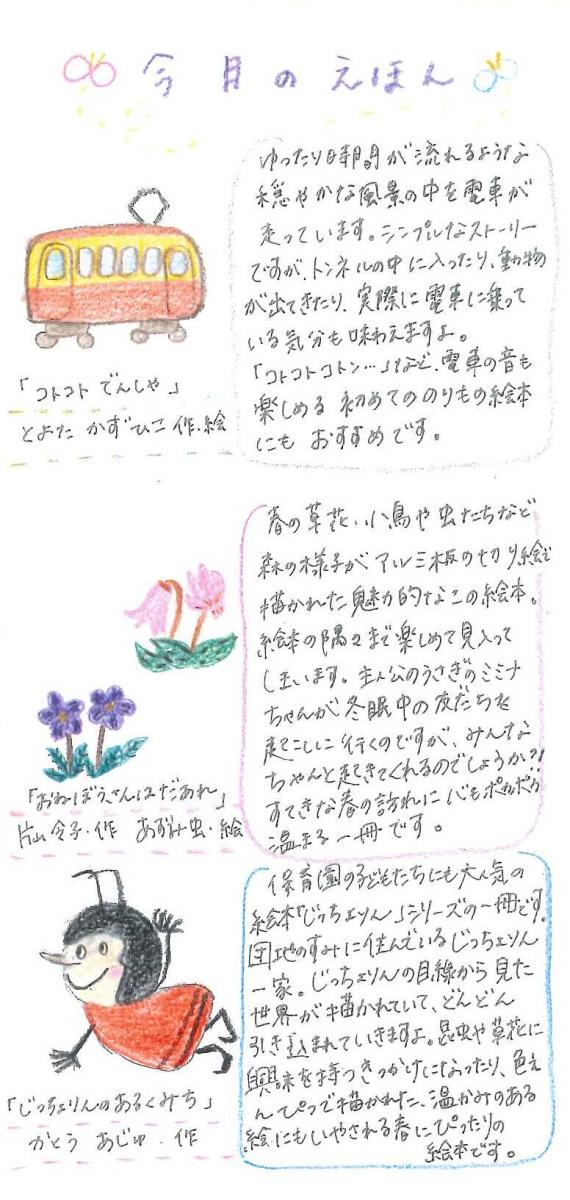 今月のえほん
ゆったり時間が流れるような
穏やかな風景の中を電車が
走っています。シンプルなストーリー
ですが、トンネルの中に入ったり、動物
が出てきたり、実際に電車に乗って
いる気分も味わえますよ。
「コトコトコトン…」など、電車の音も
楽しめる 初めてののりもの絵本
にも おすすめです。
「コトコト でんしゃ」
とよた かずひこ 作・絵
春の草花、小鳥や虫たちなど
森の様子がアルミ板の切り絵で
描かれた魅力的なこの絵本。
絵本の隅々まで楽しめて見入って
しまいます。主人公のうさぎのミミナ
ちゃんが冬眠中の友だちを
起こしに行くのですが、みんな
ちゃんと起きてくれるのでしょうか?!
すてきな春の訪れに心もポカポカ
温まる一冊です。
「おねぼうさんはだあれ」
片山令子・作 あずみ虫・絵
保育園の子どもたちにも大人気の
絵本「じっちょりん」シリーズの一冊です。
団地のすみに住んでいるじっちょりん
一家。じっちょりんの目線から見た
世界が描かれていて、どんどん
引き込まれていきますよ。昆虫や草花に
興味を持つきっかけになったり、色え
んぴつで描かれた、温かみのある
絵にもいやされる春にぴったりの
絵本です。
「じっちょりんのあるくみち」
かとう あじゅ・作